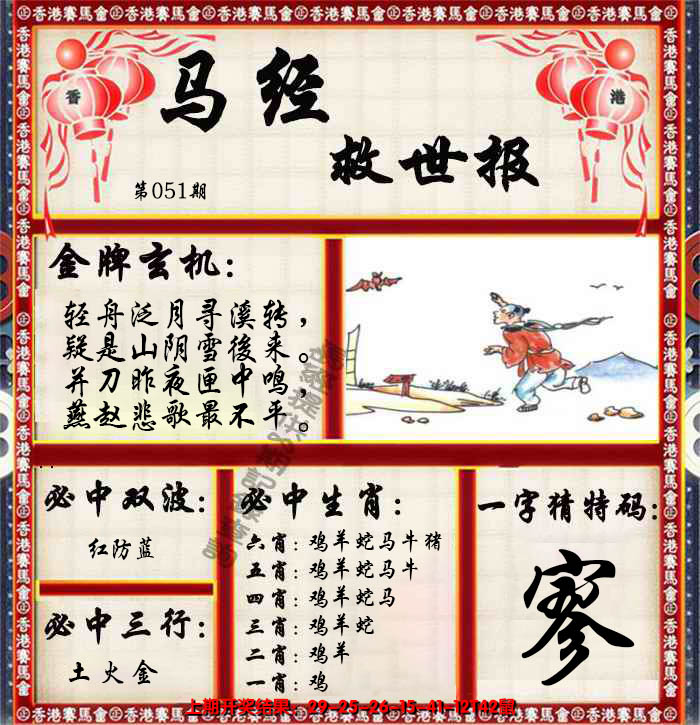 香港賽馬會㊣香港賽馬會㊣香港賽馬會㊣香港賽馬會
香
港
马经
救世报
第051期
金牌玄机：
轻舟泛月寻溪转，
疑是山阴雪後来。
并刀昨夜匣中鸣，
燕赵悲歌最不平。
必中双波：
红防蓝
必中三行：
土火金
必中生肖：
六肖：鸡羊蛇马牛猪
五肖：鸡羊蛇马牛
四肖：鸡羊蛇马
三肖：鸡羊蛇
二肖：鸡羊
一肖：鸡
一字猜特码：
寥
上期开奖结果：29-25-26-15-41-12T42鼠